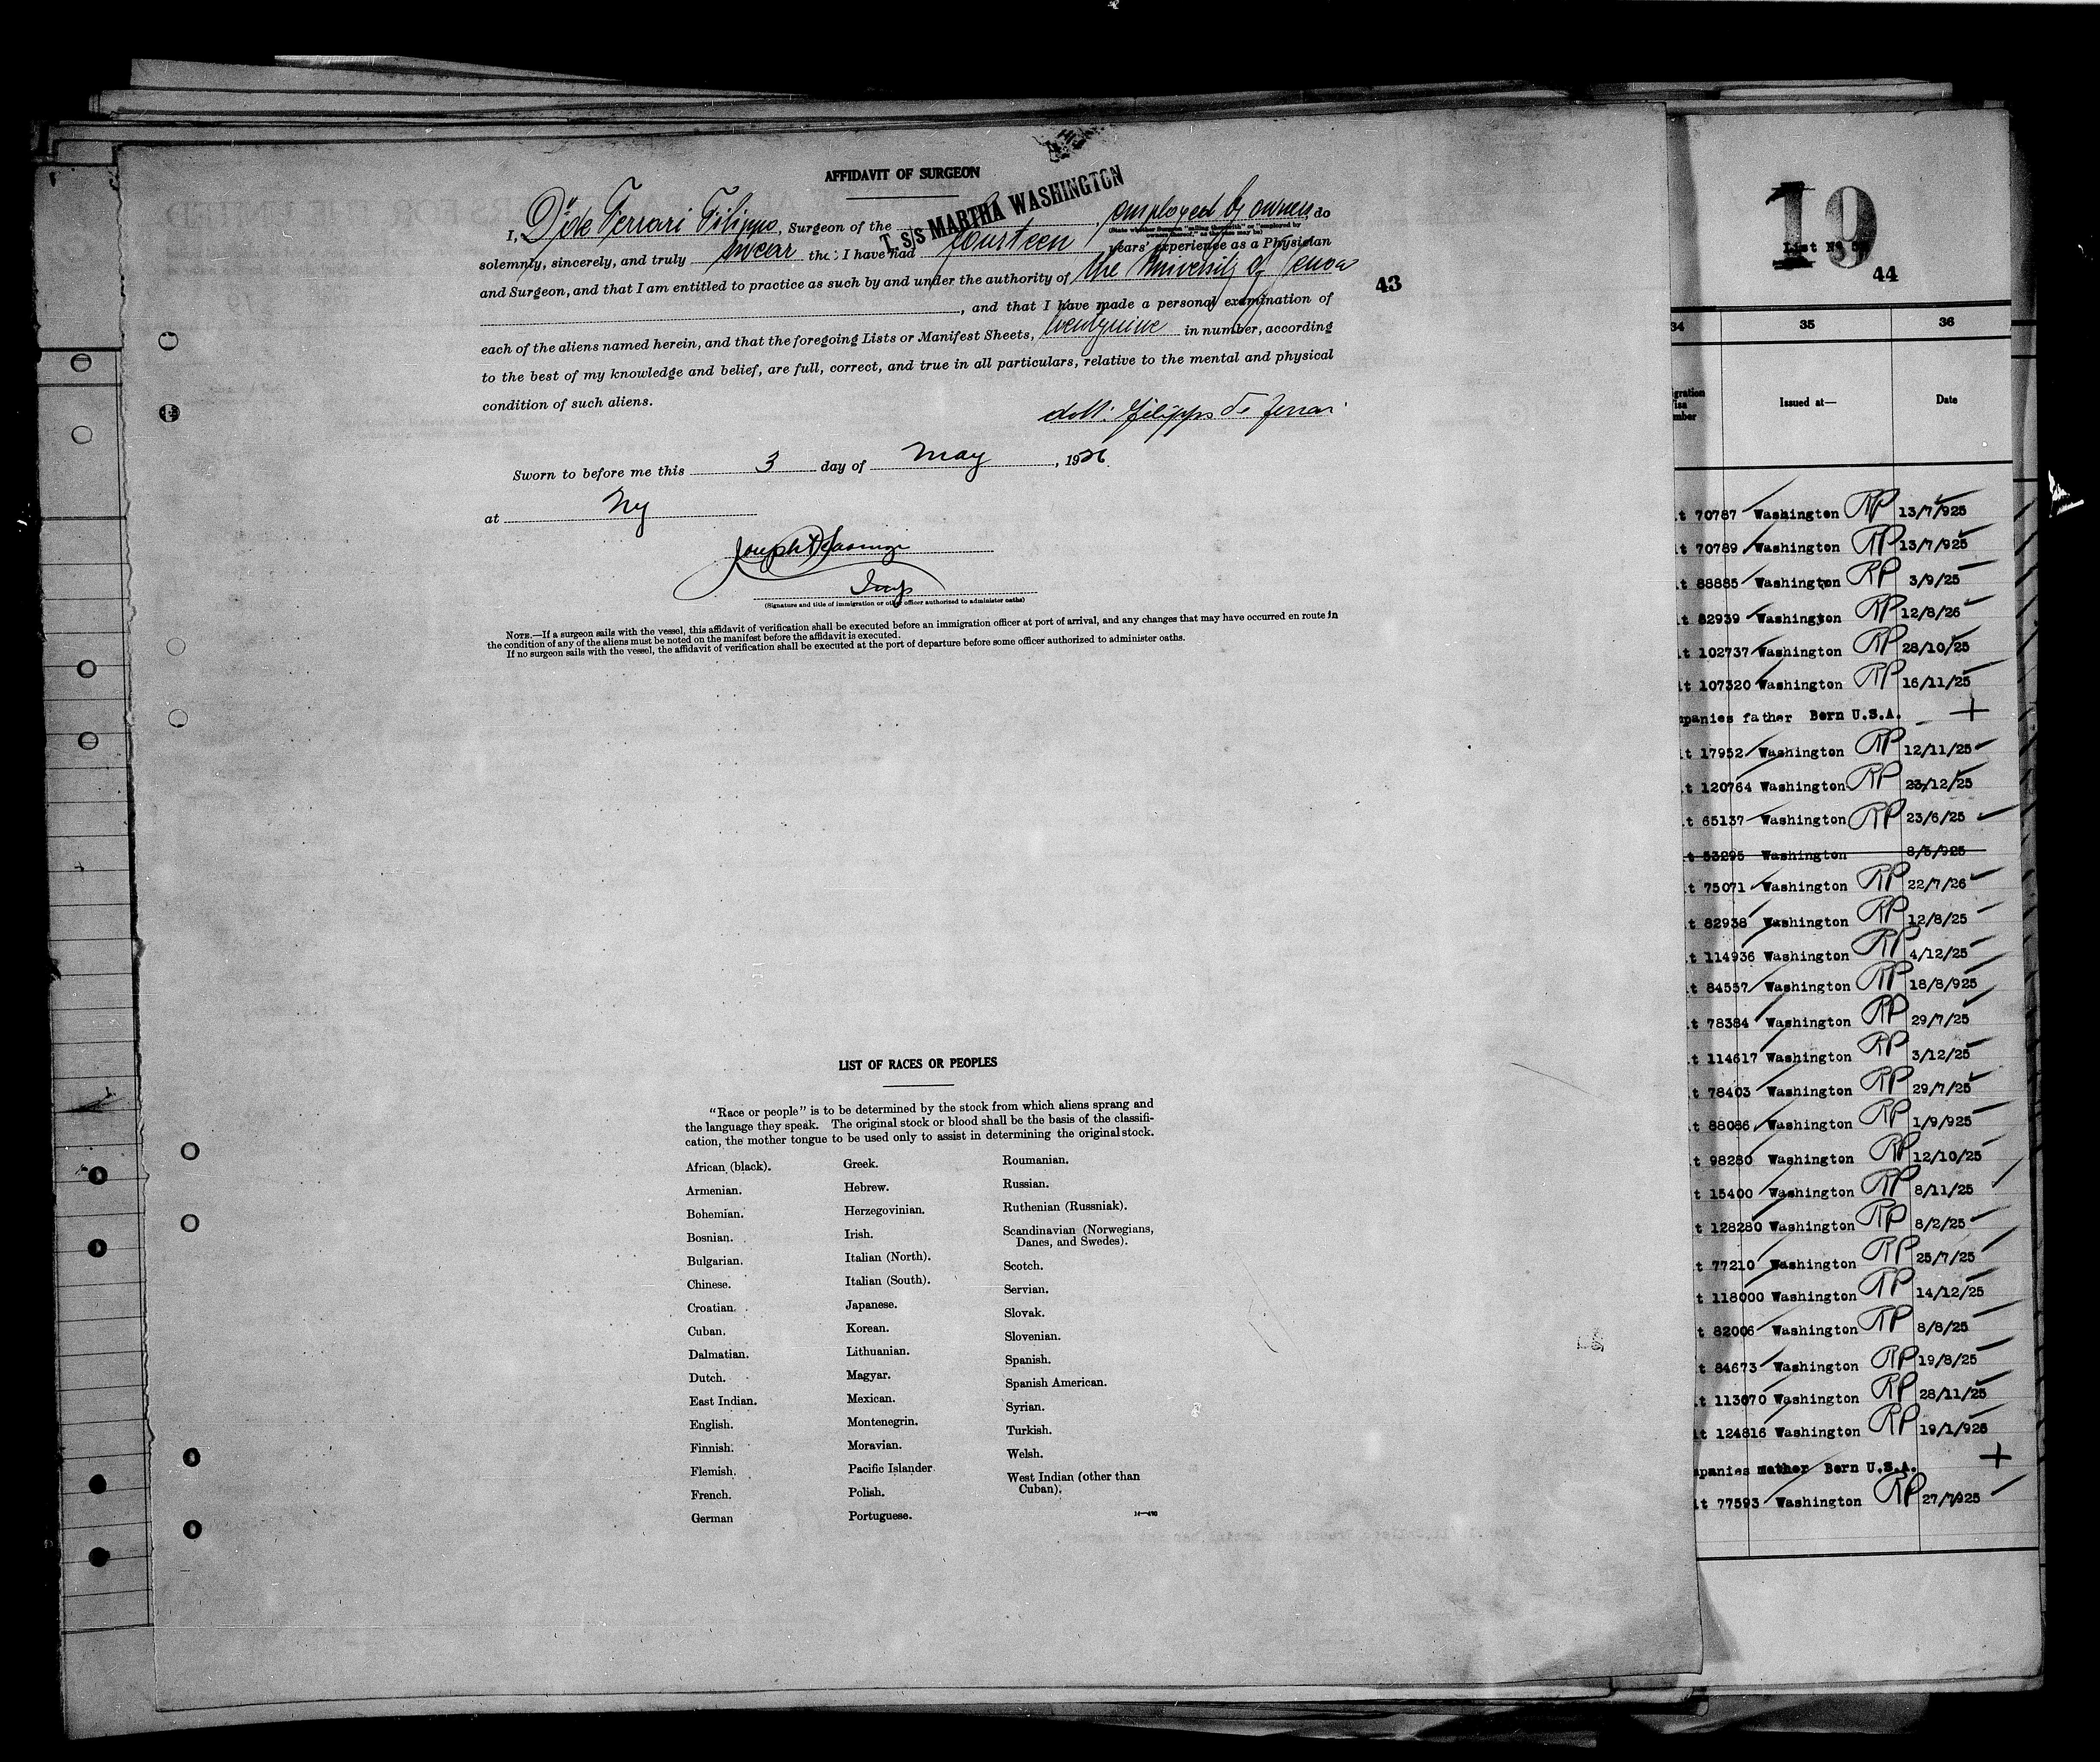 AFFIDAVIT OF SURGEON
T. S/S MARTHA WASHINGTON
I, Dr de Ferrari Filippo, Surgeon of the employed by owners, do
(State whether Surgeon "sailing therewith" or "employed by
owners thereof," as the case may be)
solemnly, sincerely, and truly swear that I have had fourteen years' experience as a Physician
and Surgeon, and that I am entitled to practice as such by and under the authority of the University of Genoa
, and that I have made a personal examination of
each of the aliens named herein, and that the foregoing Lists or Manifest Sheets, twentynine in number, according
to the best of my knowledge and belief, are full, correct, and true in all particulars, relative to the mental and physical
condition of such aliens.
dott. Filippo De Ferrari
Sworn to before me this 3 day of May, 1926.
at NY
Joseph
Insp
(Signature and title of immigration or other officer authorized to administer oaths)
NOTE.—If a surgeon sails with the vessel, this affidavit of verification shall be executed before an immigration officer at port of arrival, and any changes that may have occurred en route in
the condition of any of the aliens must be noted on the manifest before the affidavit is executed.
If no surgeon sails with the vessel, the affidavit of verification shall be executed at the port of departure before some officer authorized to administer oaths.
43
LIST OF RACES OR PEOPLES
"Race or people" is to be determined by the stock from which aliens sprang and
the language they speak. The original stock or blood shall be the basis of the classifi-
cation, the mother tongue to be used only to assist in determining the original stock.
African (black).
Armenian.
Bohemian.
Bosnian.
Bulgarian.
Chinese.
Croatian.
Cuban.
Dalmatian.
Dutch.
East Indian.
English.
Finnish.
Flemish.
French.
German
Greek.
Hebrew.
Herzegovinian.
Irish.
Italian (North).
Italian (South).
Japanese.
Korean.
Lithuanian.
Magyar.
Mexican.
Montenegrin.
Moravian.
Pacific Islander
Polish.
Portuguese.
Roumanian.
Russian.
Ruthenian (Russniak).
Scandinavian (Norwegians,
Danes, and Swedes).
Scotch.
Servian.
Slovak.
Slovenian.
Spanish.
Spanish American.
Syrian.
Turkish.
Welsh.
West Indian (other than
Cuban).
19
List No
44
34 35 36
gration
isa
mber
Issued at—
Date
t 70787 Washington RP 13/7/925
t 70789 Washington RP 13/7/925
t 88885 Washington RP 3/9/25
t 82939 Washington RP 12/8/26
t 102737 Washington RP 28/10/25
t 107320 Washington RP 16/11/25
panies father Born U.S.A. +
t 17952 Washington RP 12/11/25
t 120764 Washington RP 23/12/25
t 65137 Washington RP 23/6/25
t 53295 Washington 8/5/925
t 75071 Washington RP 22/7/26
t 82938 Washington RP 12/8/25
t 114936 Washington RP 4/12/25
t 84557 Washington RP 18/8/925
t 78384 Washington RP 29/7/25
t 114617 Washington RP 3/12/25
t 78403 Washington RP 29/7/25
t 88086 Washington RP 1/9/925
t 98280 Washington RP 12/10/25
t 15400 Washington RP 8/11/25
t 128280 Washington RP 8/2/25
t 77210 Washington RP 25/7/25
t 118000 Washington RP 14/12/25
t 82006 Washington RP 8/8/25
t 84673 Washington RP 19/8/25
t 113070 Washington RP 28/11/25
t 124816 Washington RP 19/1/925
panies mother Born U.S.A. +
t 77593 Washington RP 27/7/925